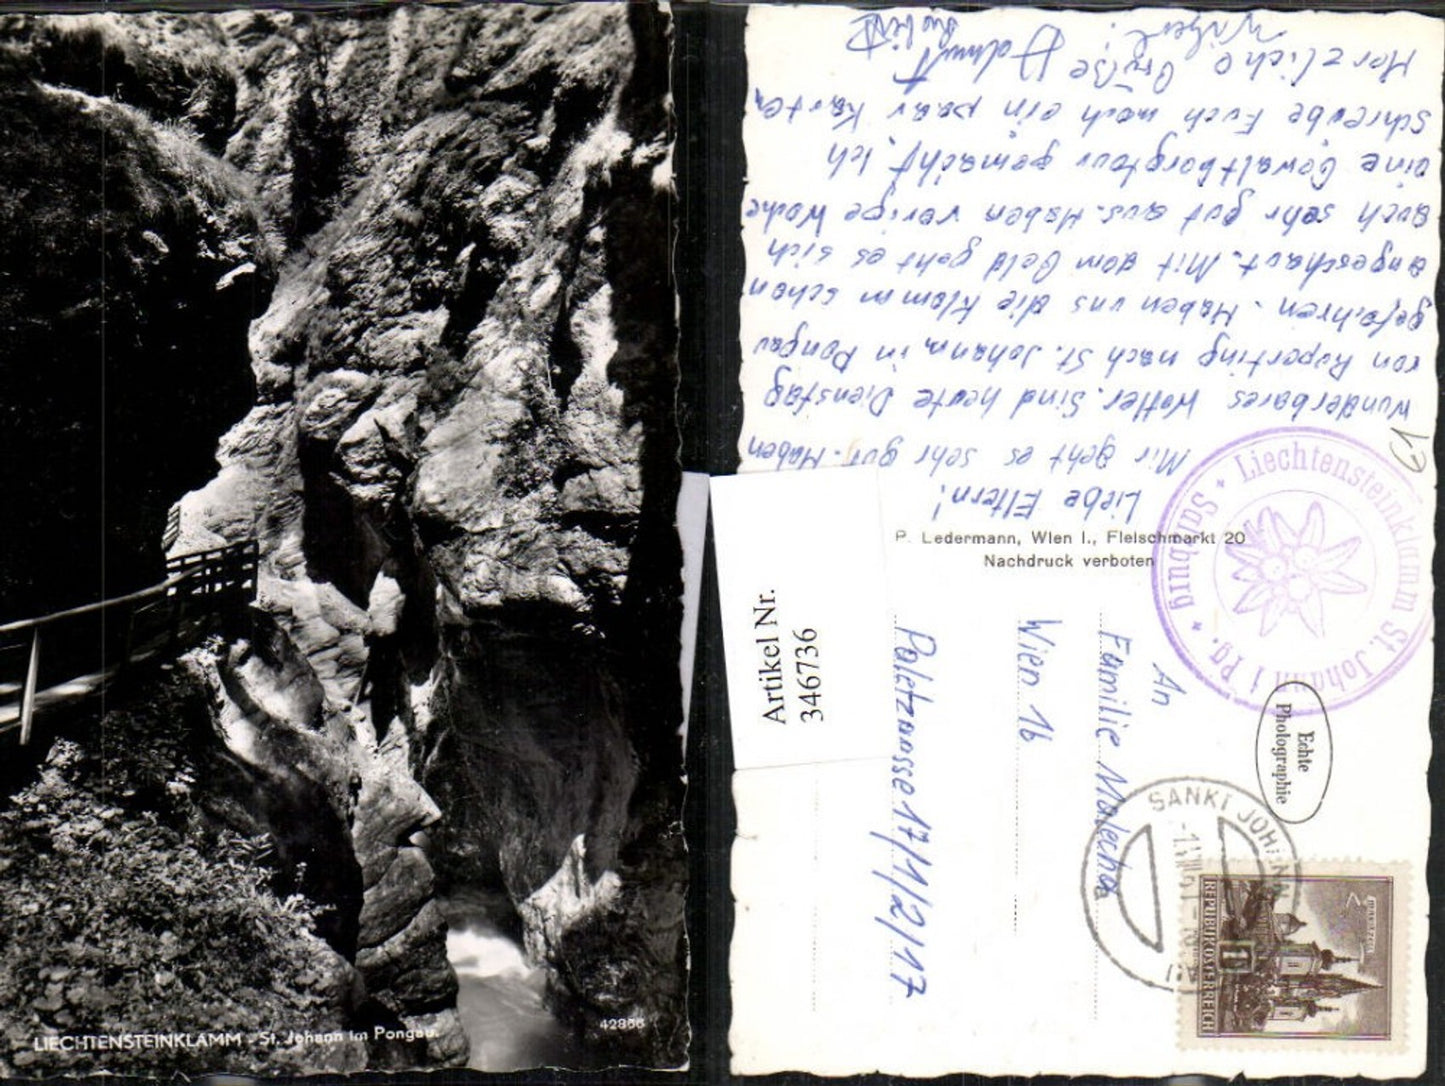 LIECHTENSTEINKLAMM - St. Johann im Pongau.
42866
Liebe Eltern!
Mir geht es sehr gut. Haben
wunderbares Wetter. Sind heute Dienstag
von Ruperting nach St. Johann, in Pongau
gefahren. Haben uns die Klamm schon
angeschaut. Mit dem Geld geht es sich
auch sehr gut aus. Haben vorige Woche
eine Gewaltbergtour gemacht. Ich
schreibe Euch noch ein paar Karten
Herzliche Grüße Helmut
P. Ledermann, Wien I., Fleischmarkt 20
Nachdruck verboten
Artikel Nr.
346736
An
Familie Malecha
Wien 16
17/1/2/17
* Liechtensteinklamm St. Johann i Pg. * Salzburg
Echte
Photographie
SANKT JOHANN
REPUBLIK ÖSTERREICH
1